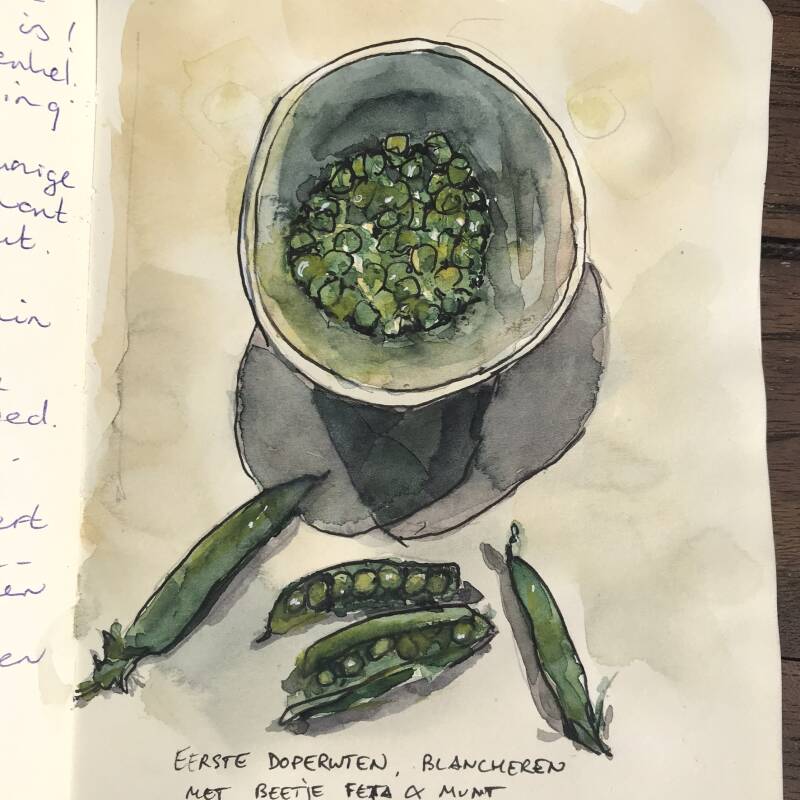 is!
enkel.
ing
uarige
ut.
ed.
en
en
EERSTE DOPERWTEN, BLANCHEREN
MET BEETJE FETA & MUNT